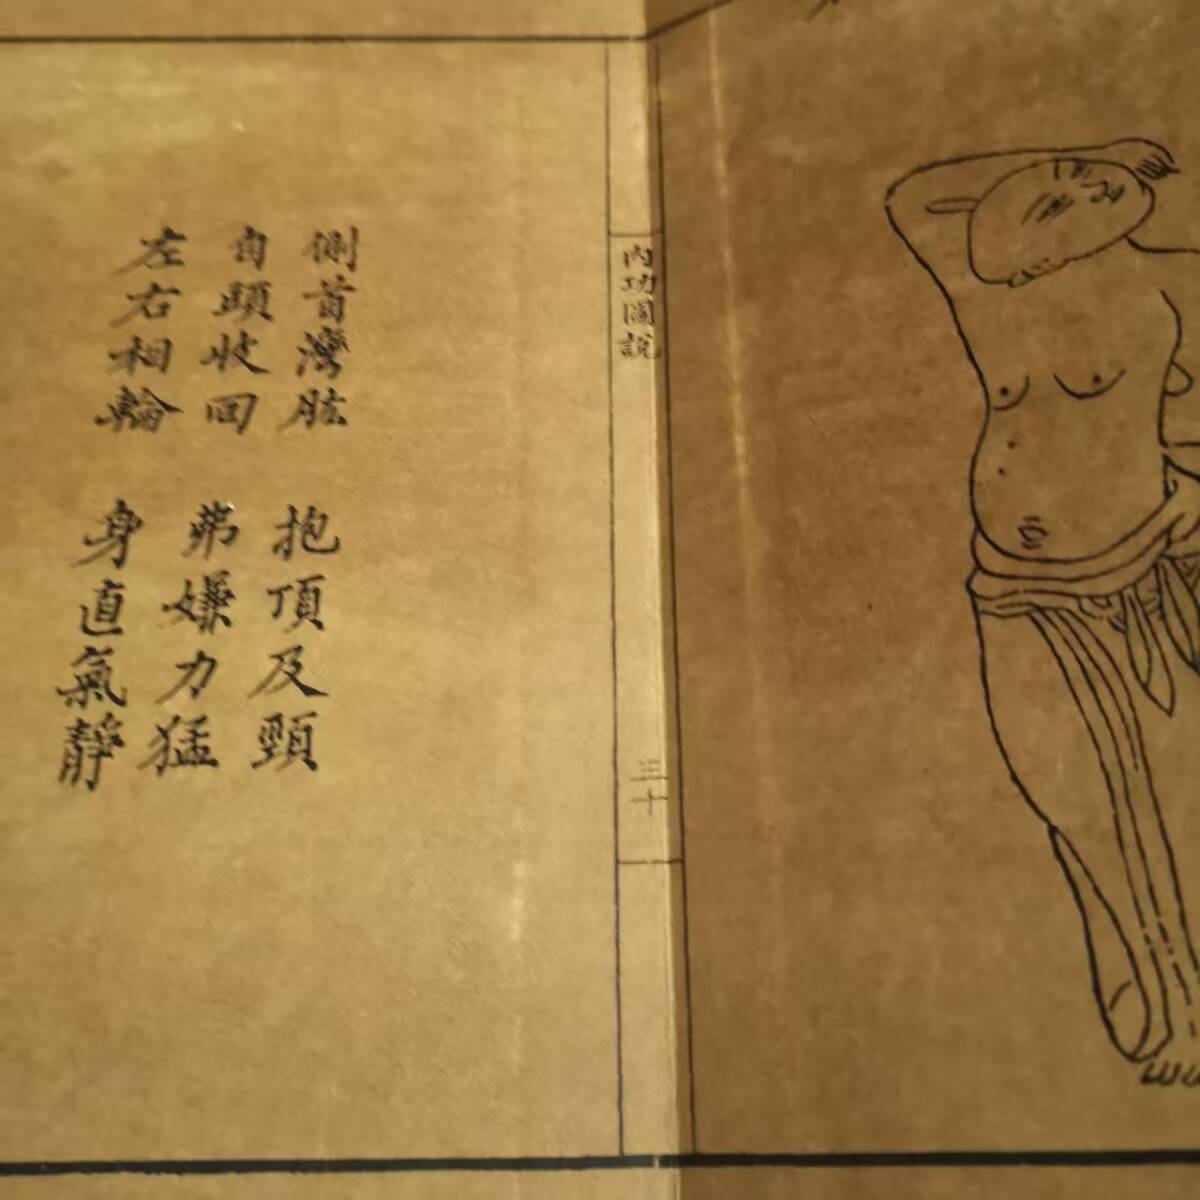 內功圖說
三十
側首灣肱 抱頂及頸
自頭收回 弗嫌力猛
左右相輪 身直氣靜